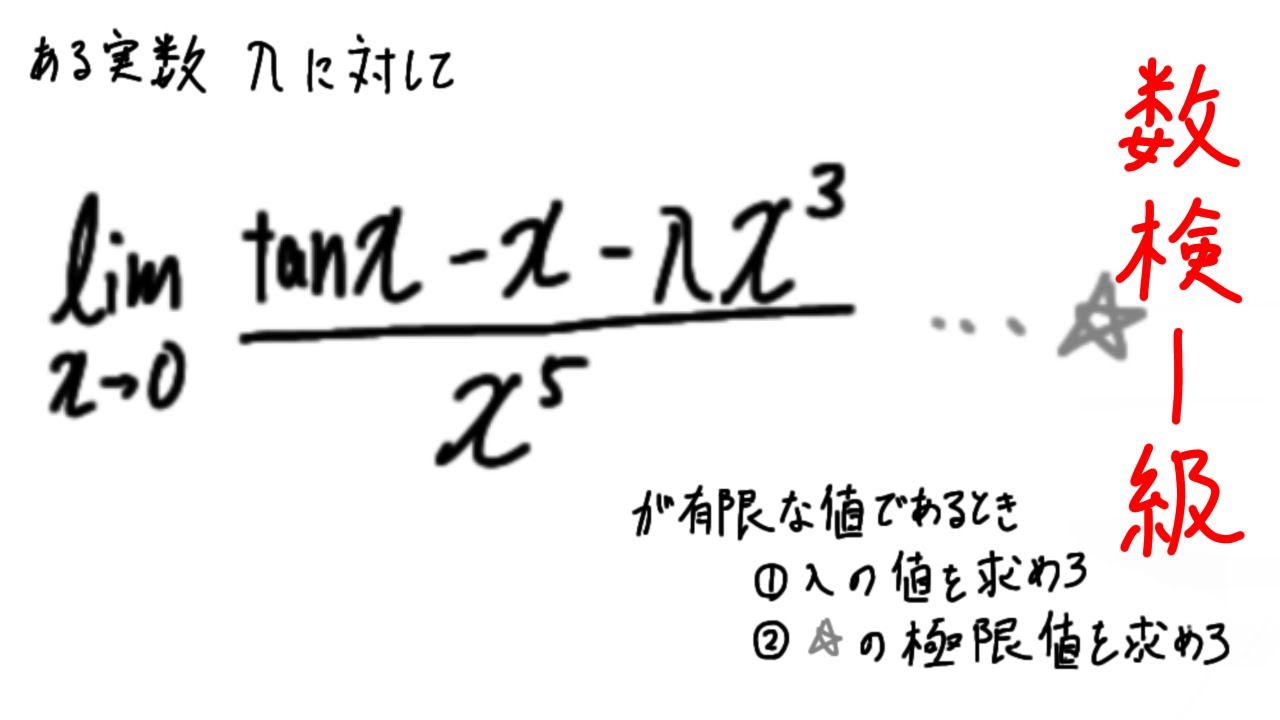 ある実数 λ に対して
lim x→0 (tanx - x - λx³) / x⁵ … ☆
が有限な値であるとき
① λの値を求めろ
② ☆の極限値を求めろ
数検1級